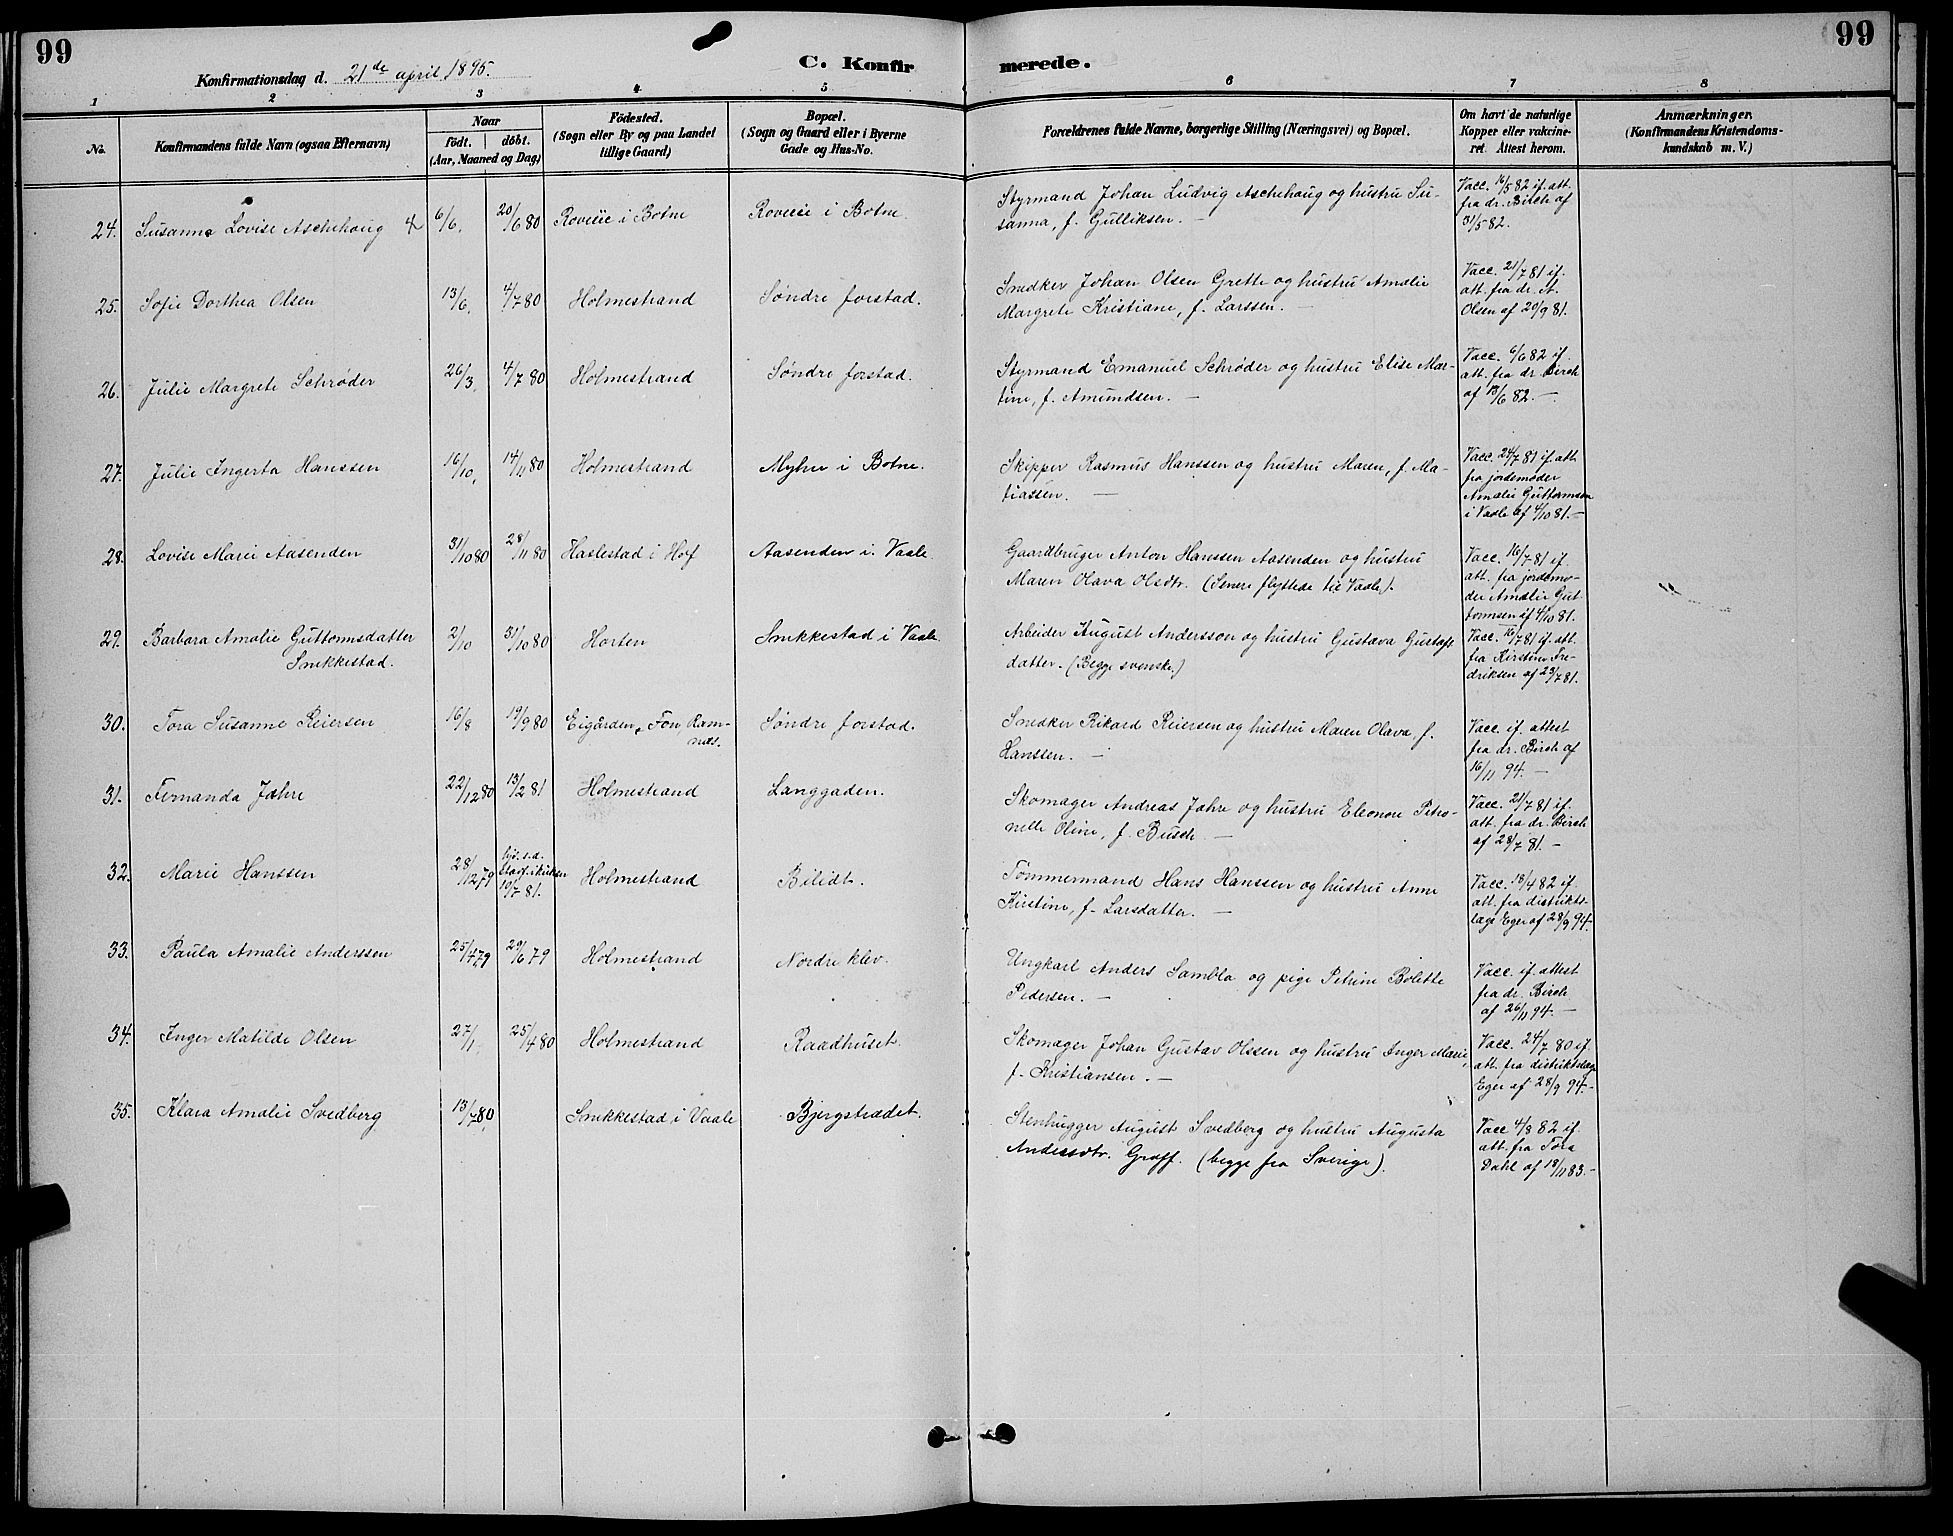 99
99
Konfirmationsdag d. 21de april 1895.
C. Konfirmerede.
1 2 3 4 5 6 7 8
No.
Konfirmandens fulde Navn (ogsaa Efternavn)
Naar
födt. döbt.
(Aar, Maaned og Dag)
Födested.
(Sogn eller By og paa Landet
tillige Gaard)
Bopæl.
(Sogn og Gaard eller i Byerne
Gade og Hus-No.
Forældrenes fulde Navne, borgerlige Stilling (Næringsvei) og Bopæl.
Om havt de naturlige
Kopper eller vakcine-
ret. Attest herom.
Anmærkninger.
(Konfirmandens Kristendoms-
kundskab m. V.)
24. Susanne Lovise Aschehoug 6/6, 20/6 80 Roveie i Botne Roveie i Botne.
Styrmand Johan Ludvig Aschehoug og hustru Su-
sanna, f. Gulliksen. -
Vacc. 16/5 82 if. att.
fra dr. Birch af
31/5 82.
25. Sofie Dorthea Olsen 13/6, 4/7 80 Holmestrand Søndre forstad.
Snedker Johan Olsen Grette og hustru Amalie
Margrete Kristiane, f. Larssen. -
Vacc. 21/7 81 if.
att. fra dr. A.
Olsen af 20/9 81.
26. Julie Margrete Schrøder 26/3, 4/7 80 Holmestrand Søndre forstad.
Styrmand Emanuel Schrøder og hustru Elise Mar-
tine, f. Amundsen. -
Vacc. 6/6 82 if.
att. fra dr. Birch
af 13/6 82. -
27. Julie Ingerta Hanssen 16/10, 14/11 80 Holmestrand Myhre i Botne.
Skipper Rasmus Hanssen og hustru Maren, f. Ma-
tiassen. -
Vacc. 24/7 81 if. att.
fra jordemoder
Amalie Guttormsen
i Vaale af 4/10 81. -
28. Lovise Marie Aasenden 31/10 80 28/11 80 Haslestad i Hof Aasenden i Vaale.
Gaardbruger Anton Hanssen Aasenden og hustru
Maren Olava Olsdtr. (Senere flyttede til Vaale).
Vacc. 16/7 81 if.
att. fra jordemo-
der Amalie Gut-
tormsen if 4/10 81.
29. Barbara Amalie Guttormsdatter
Snekkestad. 2/10 31/10 80 Horten Snekkestad i Vaale.
Arbeider August Andersson og hustru Gustava Gustafs
datter. (Begge svenske.)
Vacc. 16/7 81 if. att.
fra Kirstine Fre-
driksen af 23/7 81.
30. Tora Susanne Reiersen 16/8 19/9 80 Eigården, Fon, Ram-
næs. Søndre forstad.
Snedker Rikard Reiersen og hustru Maren Olava, f.
Hanssen. -
Vacc. if. attest
fra dr. Birch af
16/11 94. -
31. Fernanda Jahre 22/12 80 13/2 81 Holmestrand Langgaden.
Skomager Andreas Jahre og hustru Eleonore Petro-
nelle Oline, f. Busch. -
Vacc. 21/7 81 if.
att. fra dr. Birch
af 28/7 81. -
32. Marie Hanssen 28/12 79 hjd. s.d.
Stadf. i kirken
10/7 81. Holmestrand Bilidt.
Tømmermand Hans Hanssen og hustru Anne
Kirstine, f. Larsdatter. -
Vacc. 18/4 82 if.
att. fra distrikts-
læge Eger af 28/9 94.
33. Paula Amalie Anderssen 25/4 79 29/6 79 Holmestrand Nordre klev.
Ungkarl Anders Sambla og pige Petrine Bolette
Pedersen. -
Vacc. if. attest
fra dr. Birch
af 26/11 94. -
34. Inger Matilde Olsen 27/1, 25/4 80 Holmestrand Raadhuset.
Skomager Johan Gustav Olssen og hustru Inger Marie,
f. Kristiansen. -
Vacc. 24/7 80 if.
att. fra distriktslæge
Eger af 28/9 94. -
35. Klara Amalie Svedberg 13/7 80, Snekkestad i Vaale Bjergstrædet.
Stenhugger August Svedberg og hustru Augusta
Andersdtr. Graff. (begge fra Sverige).
Vacc 4/8 82 if.
att. fra Tora
Dahl af 18/11 83. -